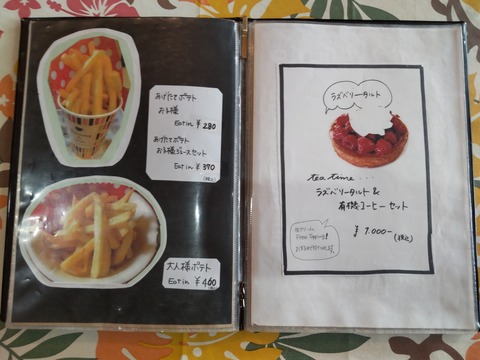 あげたてポテト
お子様
Eat in ¥280
あげたてポテト
お子様ジュースセット
Eat in ¥370
(税込)
大人様ポテト
Eat in ¥400
ラズベリータルト
tea time....
ラズベリータルト &
有機コーヒーセット
¥1.000-(税込)